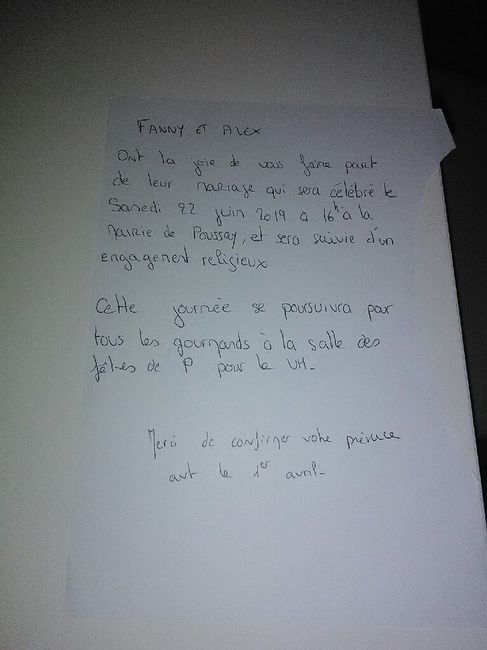 FANNY ET ALEX
Ont la joie de vous faire part
de leur mariage qui sera célébré le
Samedi 22 juin 2019 à 16h à la
Mairie de Poussay, et sera suivie d'un
engagement religieux
Cette journée se poursuivra par
tous les gourmands à la salle des
fêtes de P pour le VH.
Merci de confirmer votre présence
avt le 1er avril.